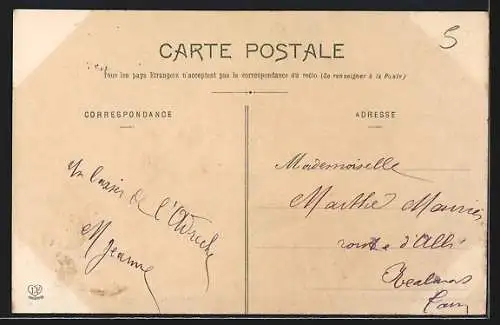 5
CARTE POSTALE
Tous les pays Etrangers n'acceptent pas la correspondance au recto (Se renseigner à la Poste)
CORRESPONDANCE
ADRESSE
Un baiser de l'Ardèche
M Jeanne
Mademoiselle
Marthe
route d'Albi
Realmont
Tarn